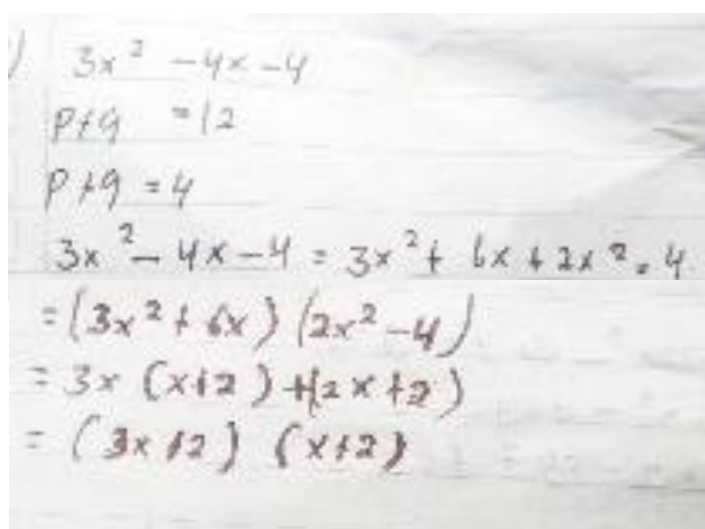 ) 3x² -4x-4
p+q =12
p+q =4
3x²- 4x-4 = 3x²+ 6x+2x²-4
=(3x²+6x) (2x²-4)
=3x (x+2) +(2x+2)
= (3x+2) (x+2)